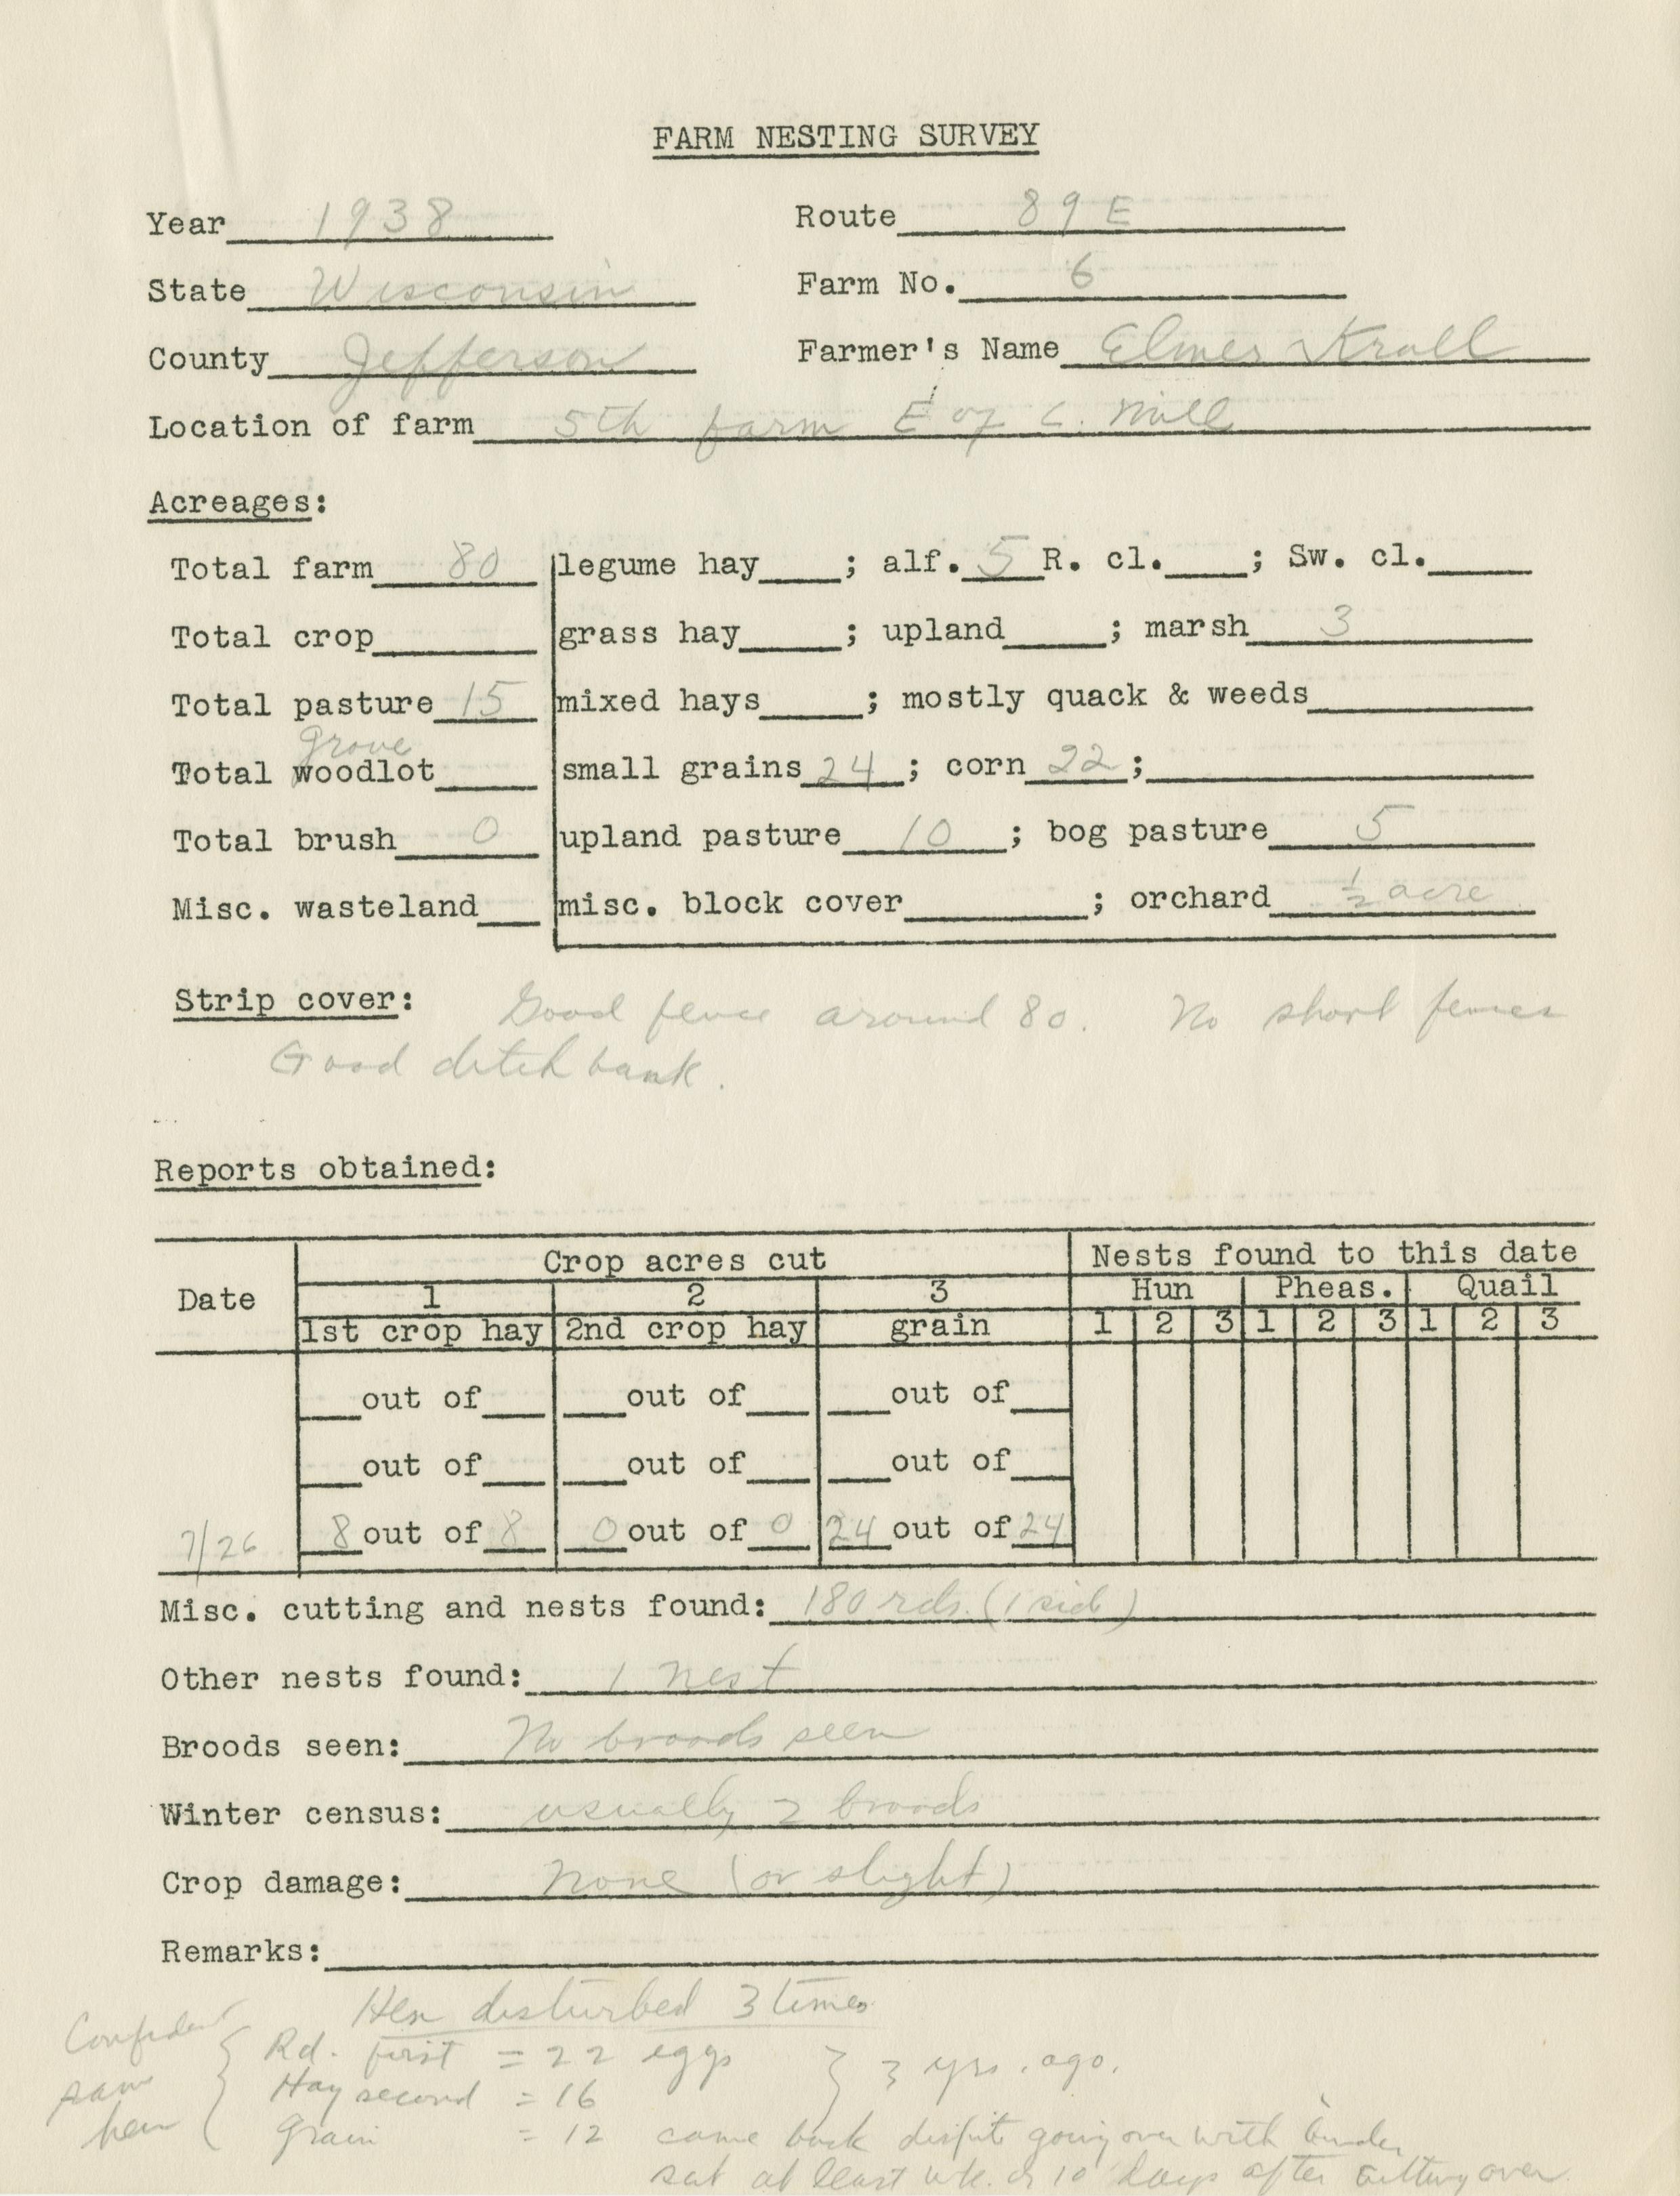 FARM NESTING SURVEY
Year 1938 Route 89 E
State Wisconsin Farm No. 6
County Jefferson Farmer's Name Elmer Krall
Location of farm 5th farm E of C. Mill
Acreages:
Total farm 80 legume hay____; alf. 5 R. cl.____; Sw. cl.____
Total crop____ grass hay____; upland____; marsh 3
Total pasture 15 mixed hays____; mostly quack & weeds____
grove
Total woodlot____ small grains 24; corn 22;____
Total brush 0 upland pasture 10; bog pasture 5
Misc. wasteland____ misc. block cover____; orchard ½ acre
Strip cover: Good fence around 80. No short fences
Good ditch bank.
Reports obtained:
Date Crop acres cut Nests found to this date
1 2 3 Hun Pheas. Quail
1st crop hay 2nd crop hay grain 1 2 3 1 2 3 1 2 3
___out of___ ___out of___ ___out of___
___out of___ ___out of___ ___out of___
7/26 8 out of 8 0 out of 0 24 out of 24
Misc. cutting and nests found: 180 rds. (1 side)
Other nests found: 1 nest
Broods seen: No broods seen
Winter census: usually 2 broods
Crop damage: None (or slight)
Remarks:
Hen disturbed 3 times
Confident same hen { Rd. first = 22 eggs } 3 yrs. ago.
Hay second = 16
Grain = 12 came back despite going over with binder
sat at least wk. or 10 days after cutting over.